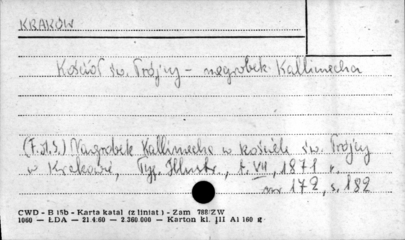 KRAKÓW
Kościół św. Trójcy - nagrobek Kallimacha
(F.M.S.) Nagrobek Kallimacha w kościele św. Trójcy
w Krakowie, Tyg. Illustr., t. VII, 1871 r.
nr 172, s. 182
CWD - B 15b - Karta katal (z liniat) - Zam 788/ZW
1060 - ŁDA - 21.4.60 - 2.360.000 - Karton kl. III A1 160 g